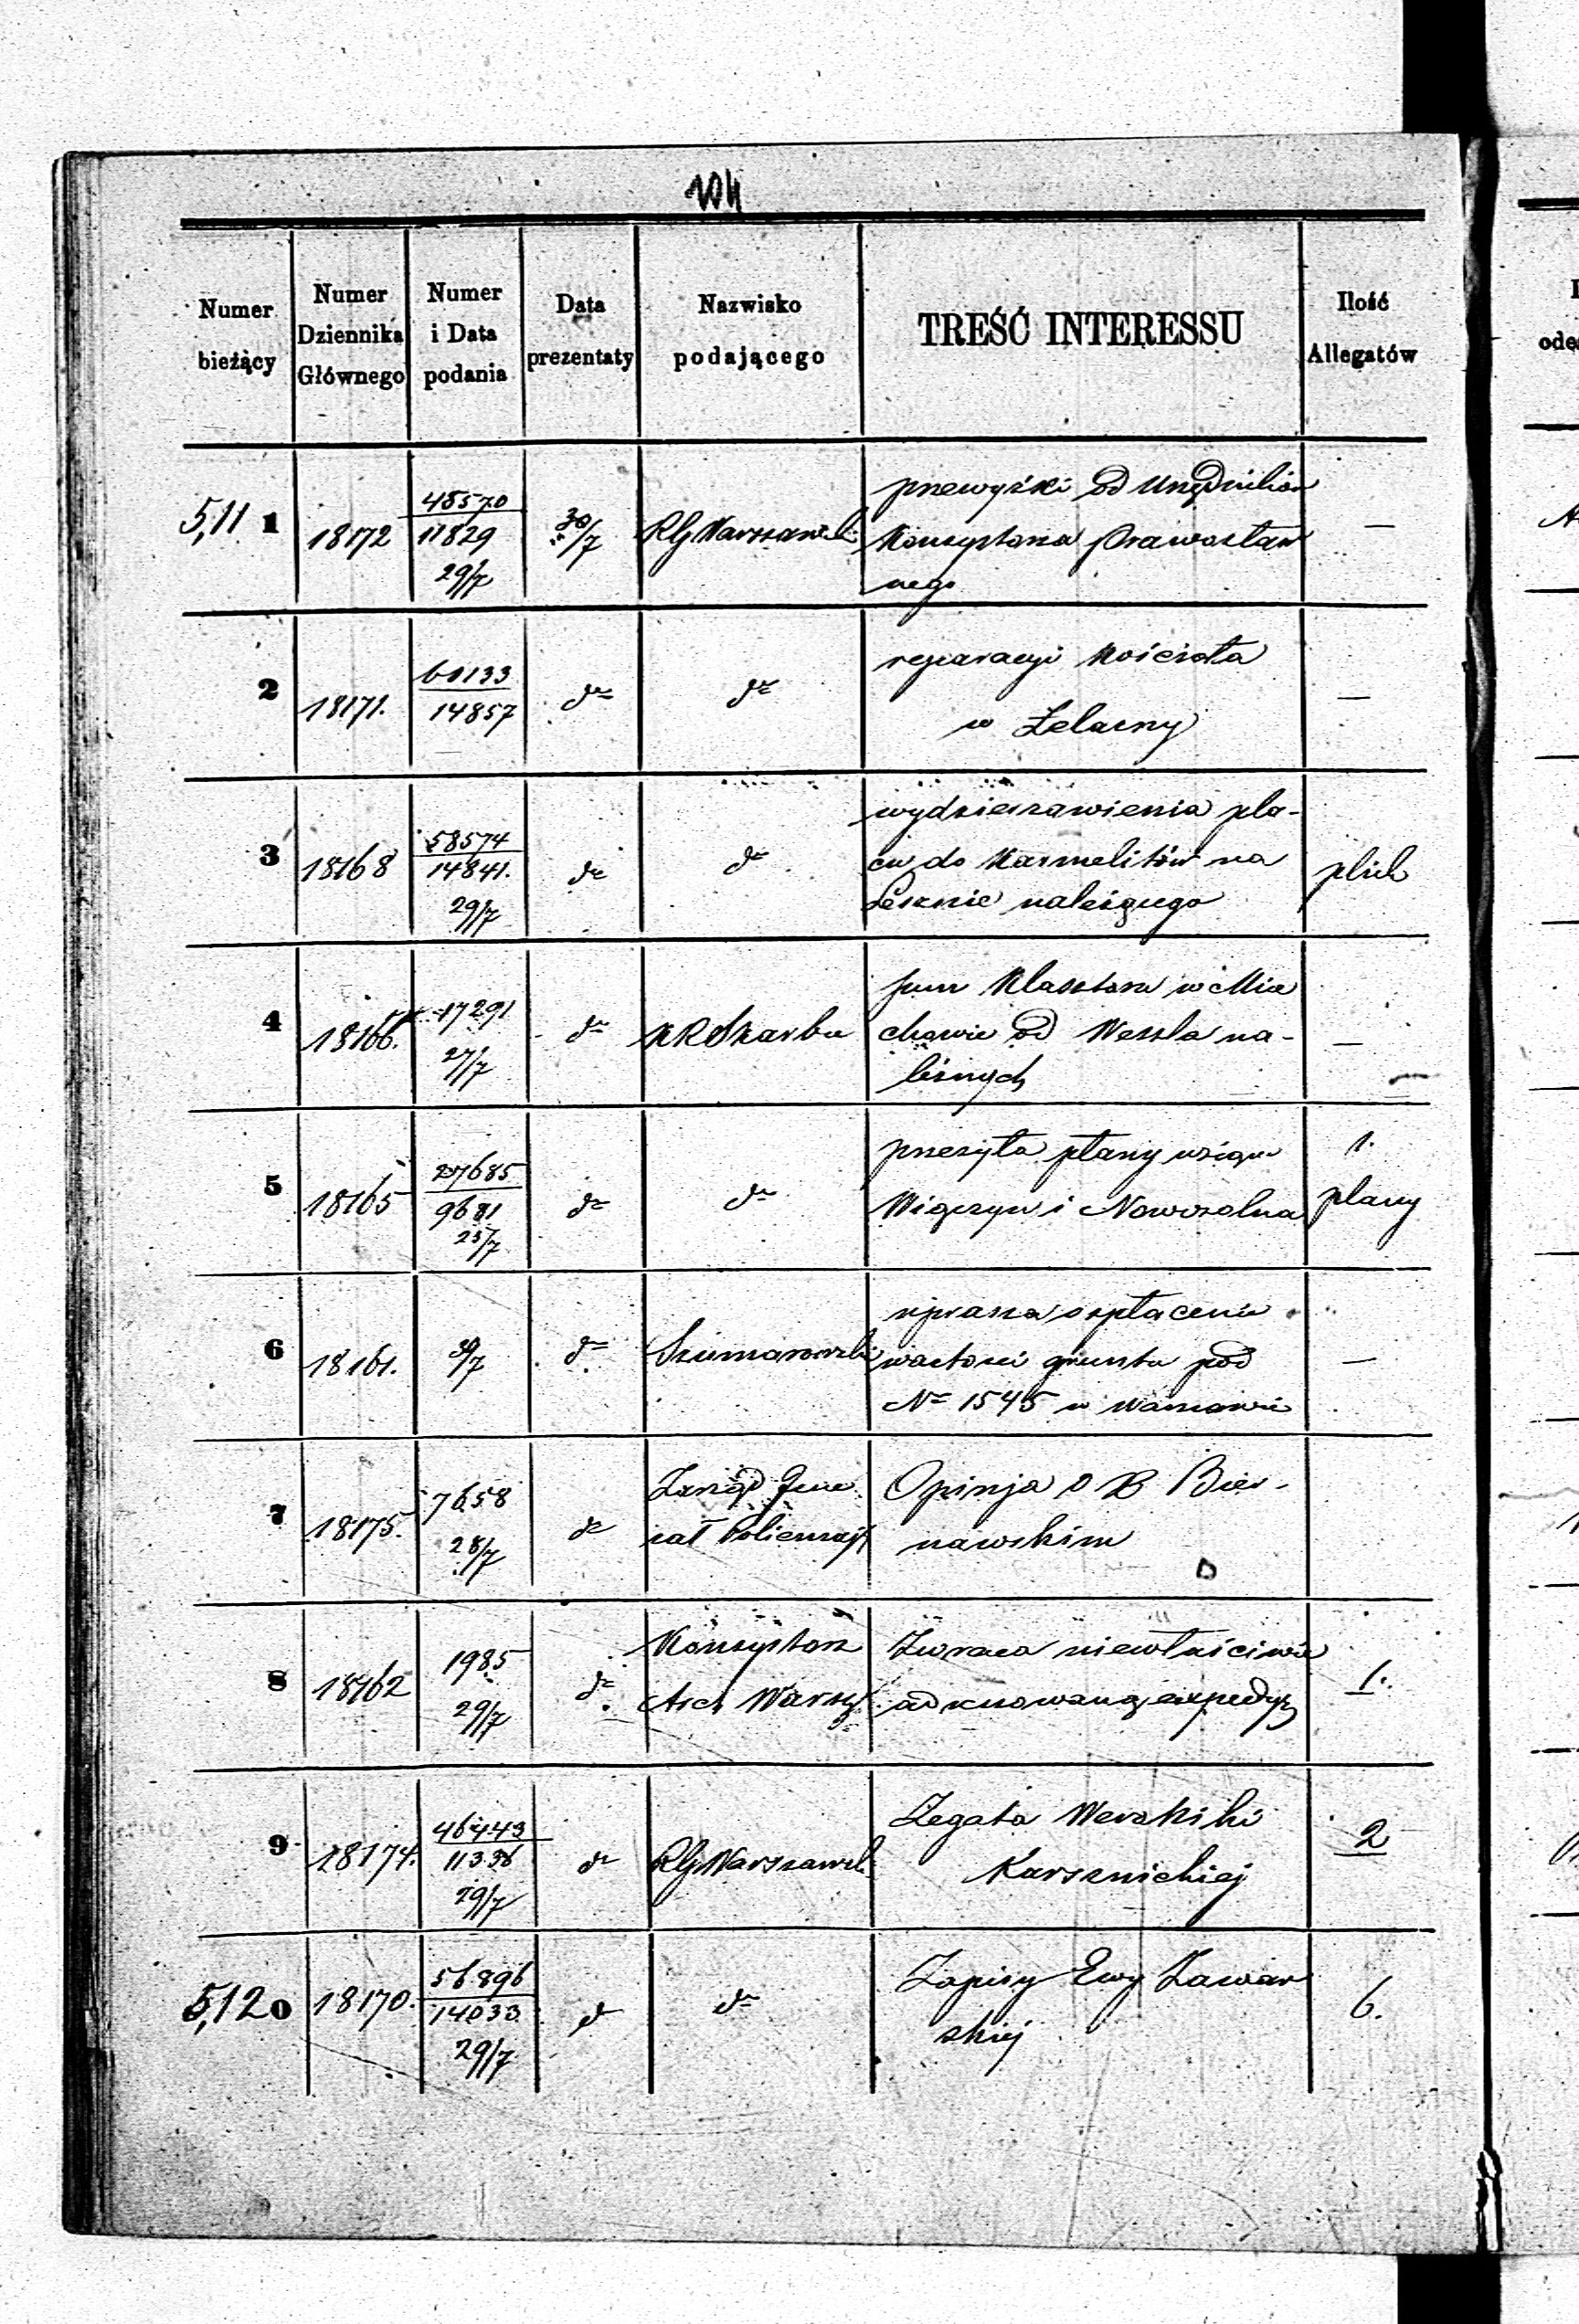 104
Numer bieżący
Numer Dziennika Głównego
Numer i Data podania
Data prezentaty
Nazwisko podającego
TREŚĆ INTERESSU
Ilość Allegatów
5,11 1
18172
48570
11829
29/7
30/7
RG Warszawski
przewyżki od Urzędników
Konsystorza Prawosław
nego
—
2
18171.
61133
14857
do
do
reparacyi Kościoła
w Żelazny
—
3
18168
58574
14841.
29/7
do
do
wydzierżawienia pla-
cu do Karmelitów na
Lesznie należącego
plik
4
18166.
17291
27/7
do
KRSkarbu
sum Klasztoru w Mie
chowie od Wessla na-
leżnych
—
5
18165
27685
9681
25/7
do
do
przesyła plany
Wiączyn i Nowosolna
1.
plany
6
18161.
30/7
do
Szumanowski
uprasza o spłacenie
wartości gruntu pod
No 1545 w Warszawie
—
7
18175.
7658
28/7
do
Zarząd Jene
rał Policmajst
Opinja o X Bier-
nawskim
8
18162
1985
29/7
do
Konsystorz
Arch Warsz.
Zwraca niewłaściwie
adresowaną expedyc
1.
9
18174.
46443
11336
29/7
do
RG Warszawski
Legata Weroniki
Karsznickiej
2
5,120
18170.
56896
14033
29/7
do
do
Zapisy Ewy Zawar
skiej
6.